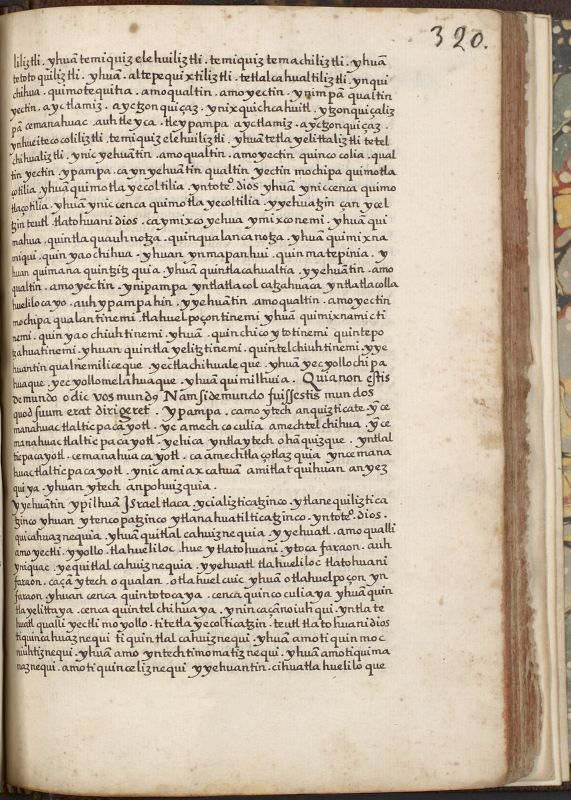 320.
liliztli . yhuā temiquiz elehuiliztli . temiquiz temachiliztli . yhuā
tetoto quiliztli . yhuā . altepequixtiliztli . tetlalcahualtiliztli . yn qui
chihua . quimotequitia . amo qualtin . amo yectin . yn impā qualtin
yectin . ayc tlamiz . ayc tzonquiçaz . yn ixquichcahuitl . ytzonquiçaliz
pā cemanahuac . auh tleyca . tley pampa ayc tlamiz . ayc tzonquiçaz .
yn huei tecocoliliztli . temiquiz elehuiliztli . yhuā tetla yelittaliztli tetel
chihualiztli . yn ic yehuātin . amo qualtin . amo yectin quincocolia . qual
tin yectin . ypampa . ca yn yehuātin qualtin yectin mochipa quimotla
çotilia . yhuā quimotlayecoltilia . yn toteº. dios yhuā yn iccenca quimo
tlaçotilia . yhuā yn iccenca quimotlayecoltilia . yyehuatzin çan ycel
tzin teutl . tlatohuani dios . ca ymixco yehua ymixco nemi . yhuā qui
mahua . quintlaquauhnotza . quinqualancanotza . yhuā quimixna
miqui . quin yaochihua . yhuan yn mapan hui . quinmatepinia . y
huan quimana quintzitzquia . yhuā quintlacahualtia . yyehuātin . amo
qualtin . amo yectin . yn ipampa yn tlatlacolcatzahuaca yn tlatlacolla
huelilocayo . auh ypampa hin . yyehuātin . amo qualtin . amo yectin
mochipa qualantinemi . tlahuelpoçontinemi yhuā quimixnamicti
nemi . quin yaochiuhtinemi . yhuā . quinchicoytotinemi quintepo
tzahuatinemi . yhuan quintlayelitztinemi . quintelchiuhtinemi . yye
huantin qualnemiliceque . yectlachihualeque . yhuā yecyollochipa
huaque . yecyollomelahuaque . yhuā quimilhuia . Quia non estis
de mundo odit vos mundꝰ. Nam si de mundo fuissestis mundos
quod suum erat dirigeret . ypampa . camo ytech anquizticate . yce
manahuac tlalticpacayotl . yc amechcoculia amechtelchihua . yce
manahuac tlalticpacayotl . yehica yntla ytech ohāquizque . yn tlal
ticpacayotl . cemanahuacayotl . ca amechtlaçotlazquia yn cemana
huac tlalticpacayotl . yn ic amiaxcahuā amitlatquihuan anyez
quiya . yhuan ytech anpohuizquia .
yyehuātin ypilhuā Israel tlaca . ycializticatzinco . ytlanequiliztica
tzinco yhuan ytencopatzinco ytlanahuatilticatzinco . yn toteº. dios .
quicahuaznequia . yhuā quitlalcahuiznequia . yyehuatl . amo qualli
amo yectli . yyollo . tlahueliloc . huey tlatohuani . ytoca faraon . auh
yn iquac . yequitlalcahuiznequia . yyehuatl tlahueliloc tlatohuani
faraon . caçā ytech oqualan . otlahuelcuic yhuā otlahuelpoçon yn
faraon . yhuan cenca quintotocaya . cenca quincoculiaya yhuā quin
tlayelittaya . cenca quintelchihuaya . yn in caçānoiuhqui . yntla te
huatl qualli yectli moyollo . titetlayecolticatzin . teutl tlatohuani dios
tiquincahuaznequi tiquintlalcahuiznequi . yhuā amo tiquinmoc
niuhtiznequi . yhuā amo yntech timomatiznequi . yhuā amo tiquima
naznequi . amo tiquinceliznequi yyehuantin . cihuatlahueliloque